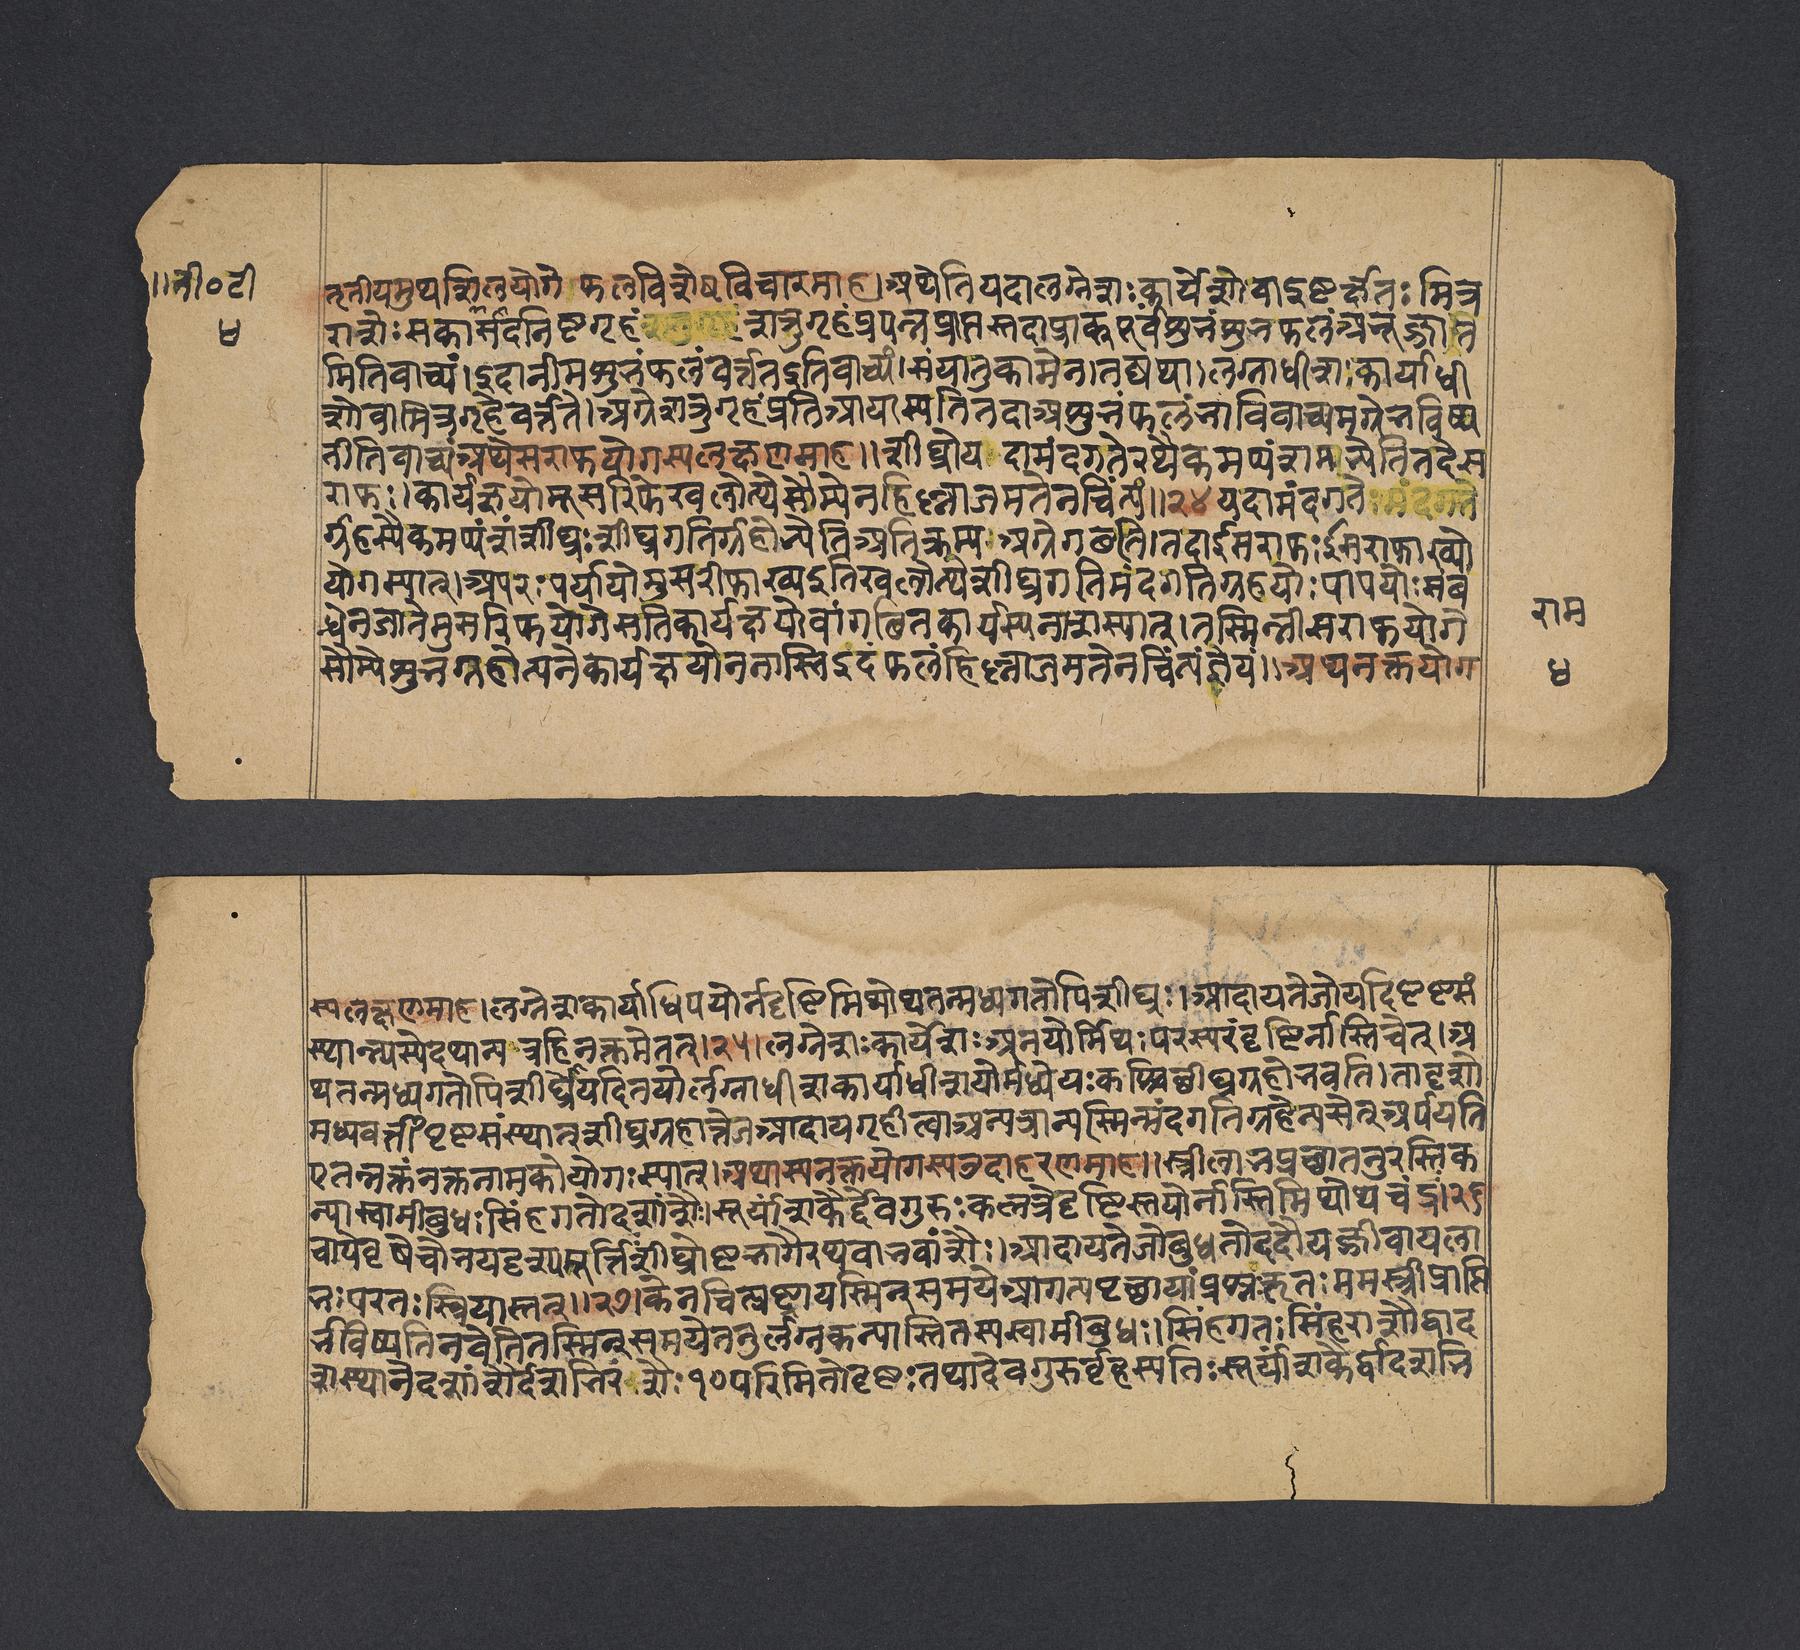 ॥नी०टी
४
तृतीयमुथशिलयोगे फलविशेषविचारमाह।अथेतियदालग्नेशः कार्येशो वा
राशेः सकाशाद निष्टगृहं शत्रुगृहंप्रपन्नप्राप्तस्तदाप्राक् पूर्वंशुभंशुभफलं
मितिवाच्यं।इदानीमशुभंफलंवर्ततइतिवाच्यं।संयातुकामेन।तद्यथा।लग्नाधीशः कार्याधी
शोवामित्रगृहेवर्त्तते।अग्रेशत्रुगृहंप्रतिआयास्यतितदाअशुभंफलंभाविवाच्यमग्रेभविष्य
तीतिवाच्यंअथेसराफयोगस्यलक्षणमाह॥शीघ्रोय दामंदगतेरथैकमप्यंशमभ्येतितदेस
राफः।कार्यक्षयोमूसरिफेखलोत्थेसौम्येनहिल्लाजमतेनचिंत्यं॥२४यदामंदगतेः मंदगते
र्ग्रहस्यैकमप्यंशंशीघ्रः शीघ्रगतिर्ग्रहोभ्येतिअतिक्रम्य अग्रेगछति।तदाईसराफः ईसराफाख्यो
योगस्यात्।अपरः पर्यायोमुसरीफाख्यइतिखलोत्थेशीघ्रगतिमंदगतिग्रहयोः पापयोः संबं
धेनजातेमुसरिफयोगेसतिकार्यक्षयोवांगछितकार्यस्यनाशस्यात्।तस्मिन्नीसराफयोगे
सौम्येशुभग्रहोत्थनेकार्यक्षयोनभास्तिइदंफलंहिल्लाजमतेनचिंत्यंज्ञेयं॥अथनक्तयोग
राम
४
स्यलक्षणमाह।लग्नेशकार्याधिपयोर्नदृष्टिर्मिथोथतन्मध्यगतोपिशीघ्रः।आदायतेजोयदिपृष्टसं
स्थान्न्यस्येदथान्यत्रहिनक्तमेतत्।२५।लग्नेशः कार्येशः अनयोर्मिथः परस्परंदृष्टिर्नास्तिचेत्।अ
थतन्मध्यगतोपिशीघ्रोयदितयोर्लग्नाधीशकार्याधीशयोर्मध्येयः कश्चिच्छीघ्रग्रहोभवति।तादृशो
मध्यवर्त्तीपृष्टसंस्थानशीघ्रग्रहात्तेजआदायगृहीत्वाअन्यत्रान्यस्मिन्मंदगतिग्रहेन्यसेत्अर्पयति
एतन्नक्तंनक्तनामकोयोगः स्यात्।अथास्यनक्तयोगस्यउदाहरणमाह॥स्त्रीलाभप्रच्छातनुरस्तिक
न्यास्वामीबुधः सिंहगतोदशांशैः।सूर्यांशकैर्देवगुरुः कलत्रेदृष्टिस्तयोर्नास्तिमिथोथचंद्रः।२६
चापेवृषेचोभयदृश्यमूर्त्तिःशीघ्रोष्टभागैरथवाभवांशैः।आदायतेजोबुधतोददौयज्जीवायला
भः परतः स्त्रियास्तत्॥२७।केनचित्पृष्टायस्मिन्समयेआगत्यपृच्छायांप्रश्नंकृतः ममस्त्रीप्राप्ति
र्भविष्यतिनवेतितस्मिन्समयेतनुर्लग्नकन्यास्तितस्यस्वामीबुधः।सिंहगतः सिंहराशौद्वाद
शस्थानेदशांशैर्दशभिरंशैः १०परिमितोदृष्टः तथादेवगुरुर्वृहस्पतिः सूर्यांशकैर्द्वादशभि